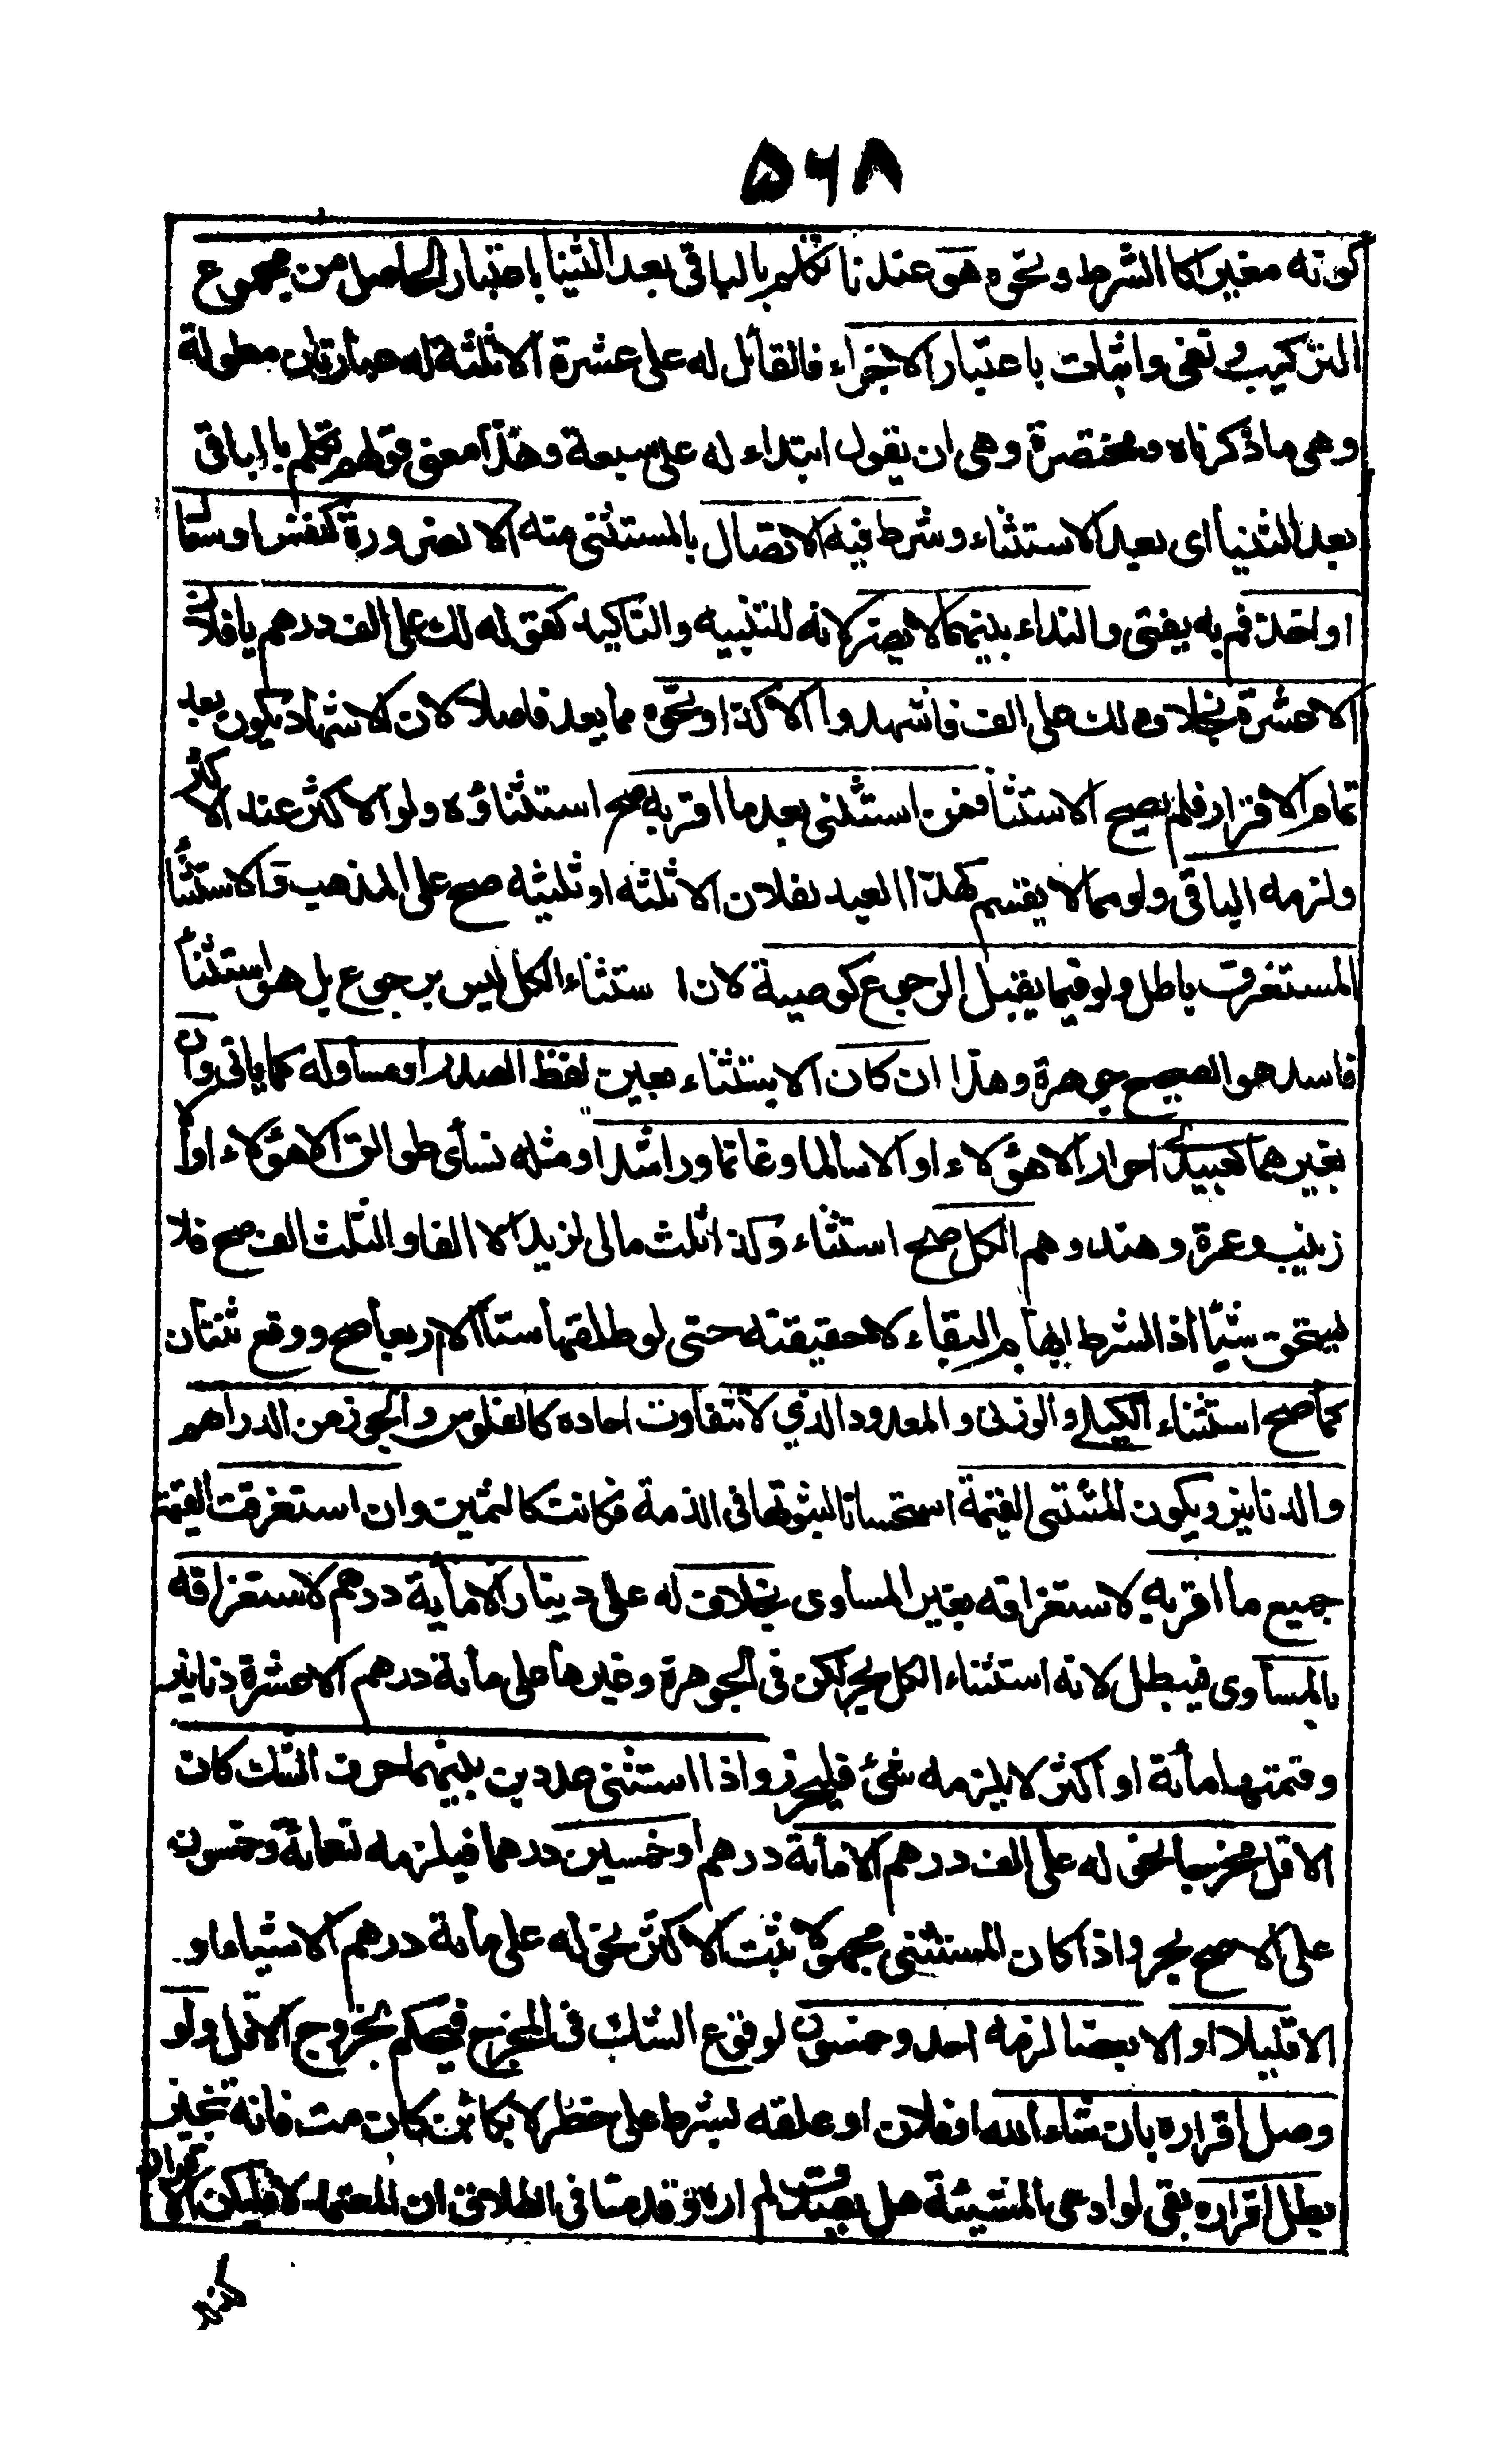 ۵۶۸
كونه مغيرا كا الشرط ونحوه هو عندنا تكلم بالباقى بعد الثنيا باعتبار الحاصل من مجموع
التركيب ونفى واثبات باعتبار الاجزاء فالقائل له على عشرة الا ثلثة له عبارتان مطولة
وهى ما ذكرناه ومختصرة وهى ان يقول ابتداء له على سبعة وهذا معنى قولهم تكلم بالباقى
بعد الثنيا اى بعد الاستثناء وشرط فيه الاتصال بالمستثنى منه الا لضرورة كنفس او سعا
او اخذ فم به يفتى والنداء بينهما لا يضر لانه للتنبيه والتاكيد كقوله لك على الف درهم يا فلان
الا عشرة بخلاف لك على الف فاشهدوا الا كذا ونحوه مما يعد فاصلا لان الاشهاد يكون بعد
تمام الاقرار فلم يصح الاستثنا فمن استثنى بعد ما اقر به صح استثناؤه ولو الاكثر عند الاكثر
ولزمه الباقى ولو مما لا يقسم كهذا العبد لفلان الا ثلثه او ثلثيه صح على المذهب والاستثنا
المستغرق باطل ولو فيما يقبل الرجوع كوصية لان استثناء الكل ليس برجوع بل هو استثنا
فاسد هو الصحيح جوهرة وهذا ان كان الاستثناء بعين لفظ الصدر او مساوله كما ياتى وان
بغيرهما كعبيدى احرار الا هؤلاء او الا سالما وغانما وراشدا ومثله نسأى طوالق الا هؤلاء او الا
زينب وعمرة وهند وهم الكل صح استثناء وكذا ثلث مالى لزيد الا الفا والثلث الف صح فلا
يستحق شيًا اذ الشرط ايهام البقاء لا حقيقته حتى لو طلقها ستا الا اربعا صح ووقع ثنتان
كما صح استثناء الكيلى والوزنى والمعدود الذي لا تتفاوت احاده كالفلوس والجوز من الدراهم
والدنانير ويكون المستثنى القيمة استحسانا لثبوتها فى الذمة فكانت كالثمين وان استغرقت القيمة
جميع ما اقر به لاستغراقه بغير المساوى بخلاف له على دينار الا مأية درهم لاستغراقه
بالمساوى فيبطل لانه استثناء الكل بحر لكن فى الجوهرة وغيرها على مأية درهم الا عشرة دنانير
وقيمتها مأئة او اكثر لا يلزمه شئ فليحرر واذا استثنى عددين بينهما حرف الشك كان
الاقل مخرجا نحو له على الف درهم الا مأئة درهم او خمسين درهما فيلزمه تسعمائة وخمسون
على الاصح بحر واذا كان المستثنى مجهولا ثبت الاكثر نحو له على مأية درهم الا شيأ او
الا قليلا او الا بعضا لزمه احد وخمسون لوقوع الشك فى المخرج فيحكم بخروج الاقل ولو
وصل اقراره بان شاء الله او فلان او علقه بشرط على خطر لا بكائن كان مت فانه تنجيز
بطل اقراره بقى لو ادعى المشيئة هل يصدق لم اره وقدمنا فى الطلاق ان المعتمد لا فليكن الاقرار